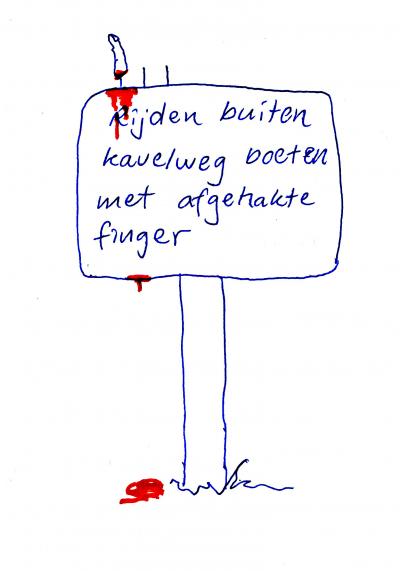 Rijden buiten
kavelweg boeten
met afgehakte
finger